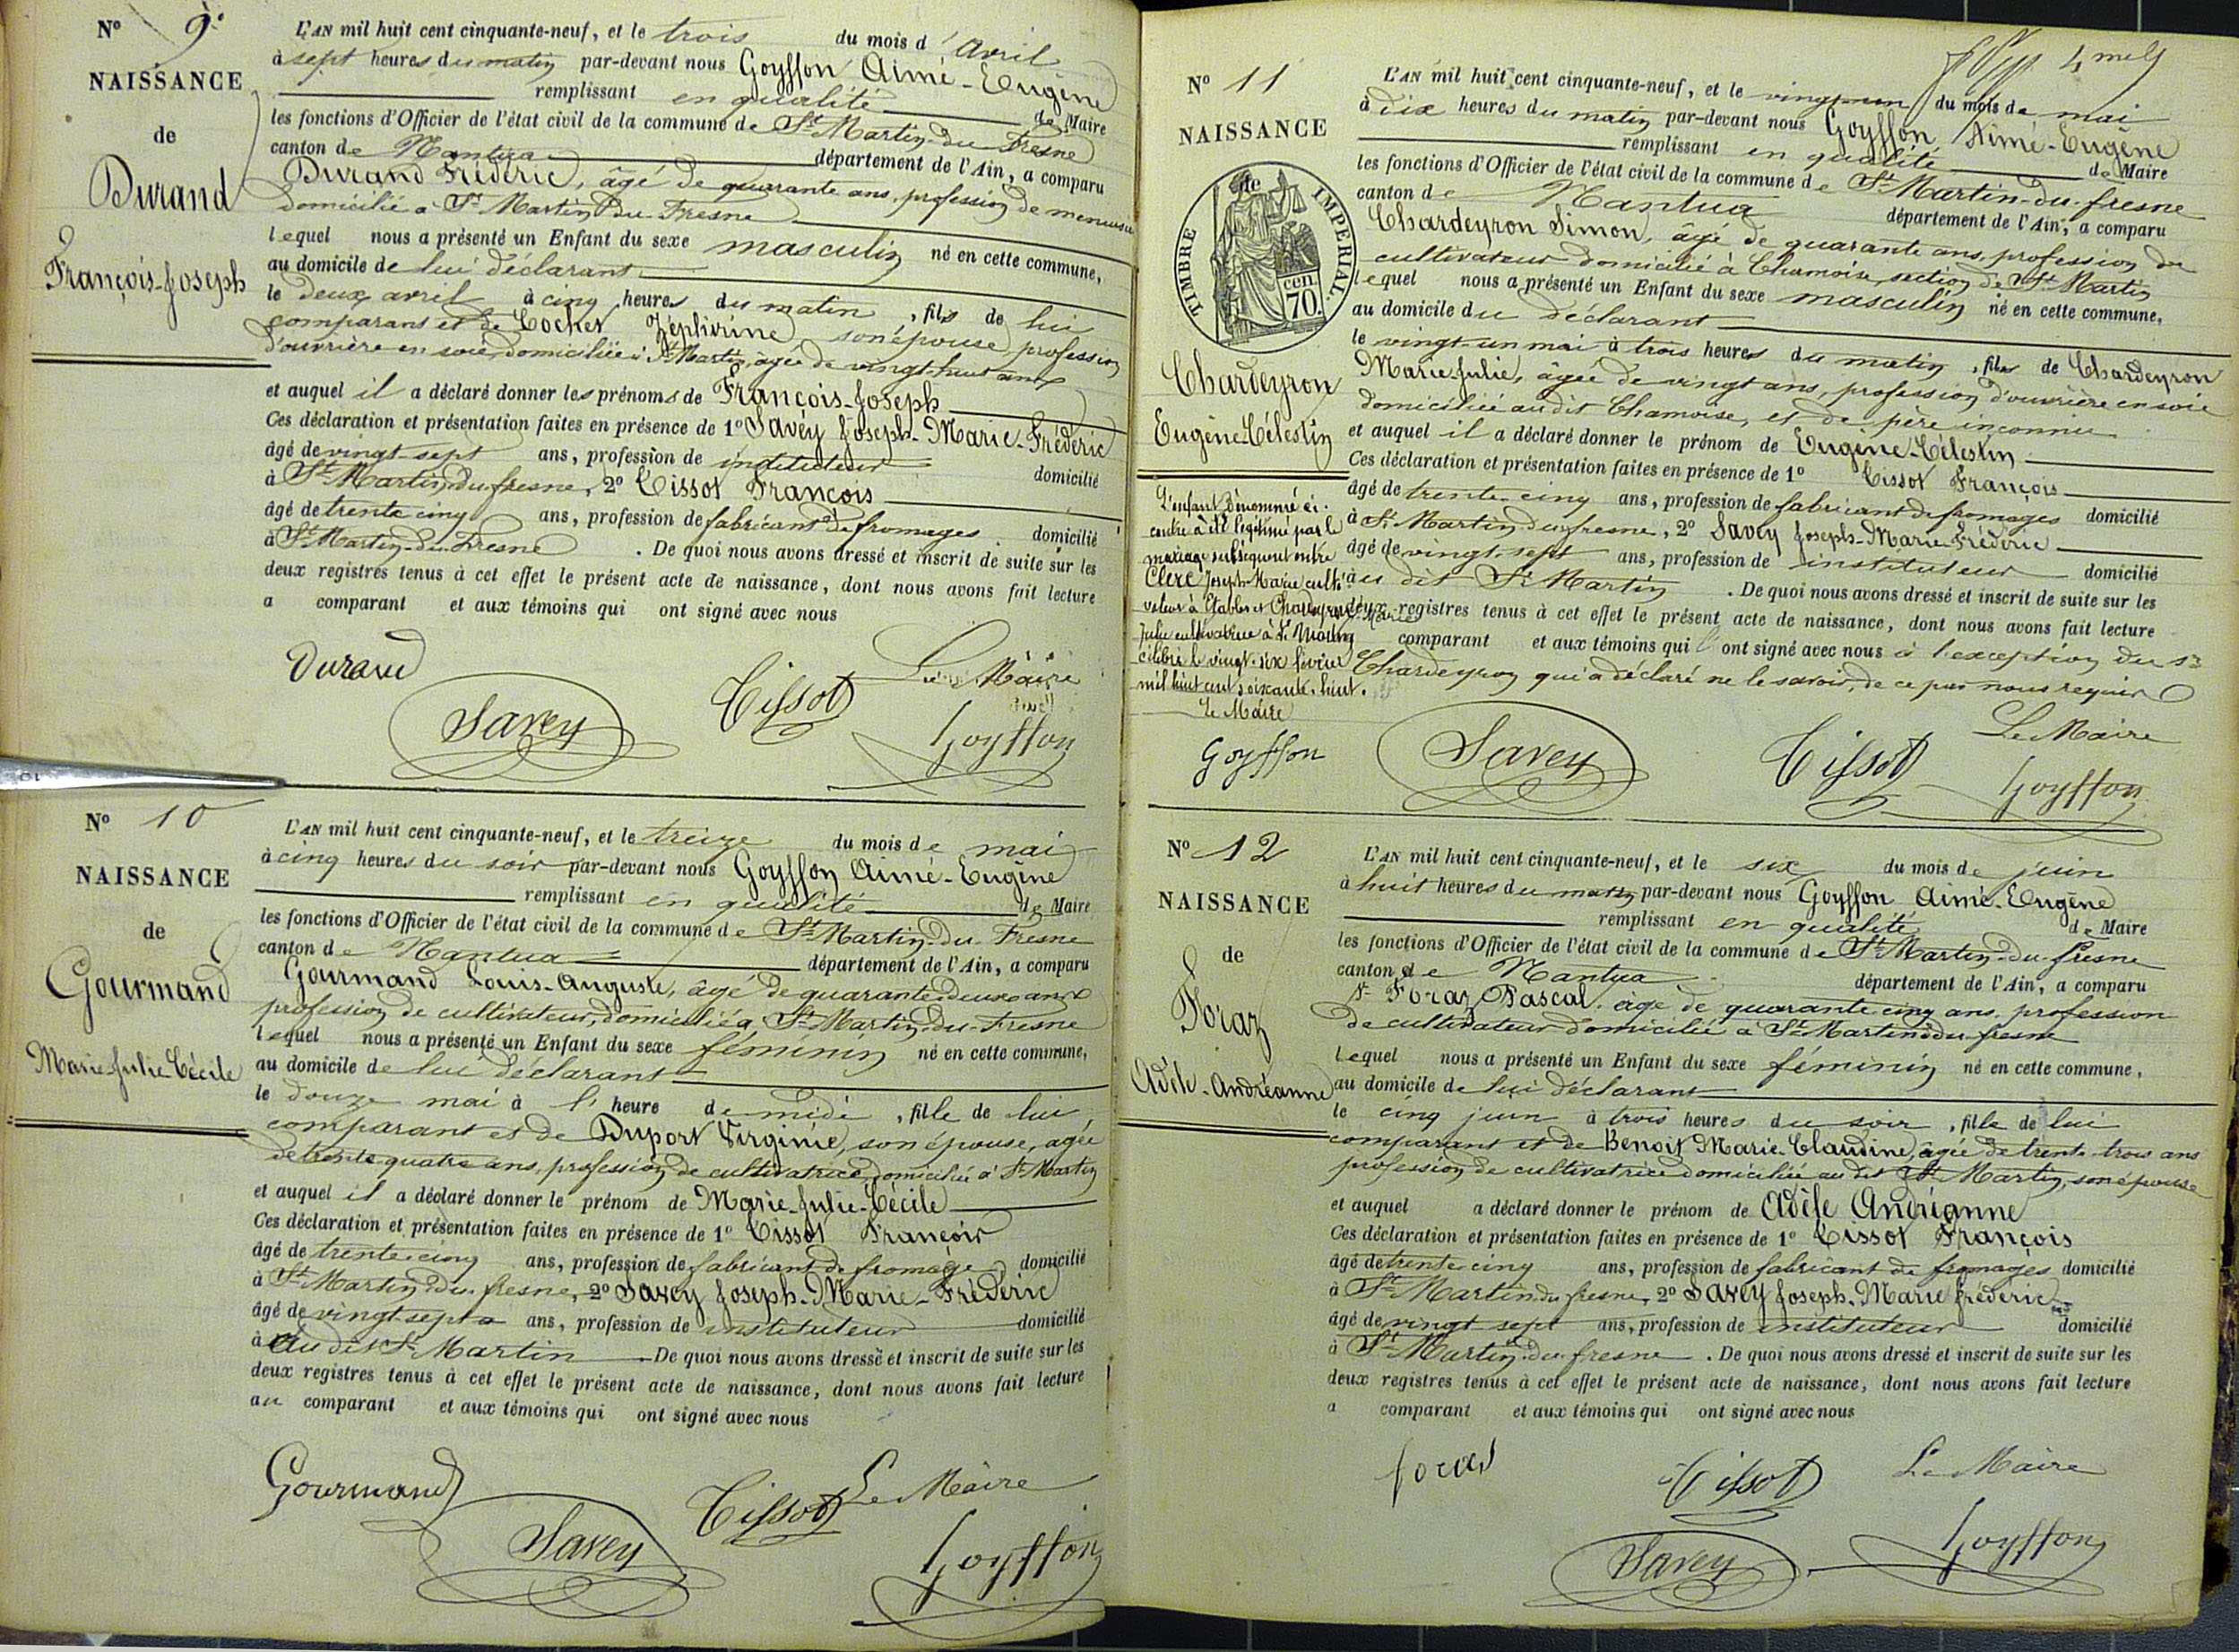 Nº 9
NAISSANCE
de
Durand
François-Joseph
L'AN mil huit cent cinquante-neuf, et le trois du mois d'avril
à sept heures du matin par-devant nous Goyffon Aimé-Eugène
remplissant en qualité de Maire
les fonctions d'Officier de l'état civil de la commune de St Martin-du-Fresne
canton de Nantua département de l'Ain, a comparu
Durand Frédéric, âgé de quarante ans, profession de menuisier
domicilié à St Martin du Fresne
lequel nous a présenté un Enfant du sexe masculin né en cette commune,
au domicile de lui déclarant
le deux avril à cinq heures du matin, fils de lui
comparant et de Cochet Zéphirine son épouse, profession
d'ouvrière en soie, domiciliée à St Martin, âgée de vingt-huit ans
et auquel il a déclaré donner les prénoms de François-Joseph
Ces déclaration et présentation faites en présence de 1º Savey Joseph-Marie-Frédéric
âgé de vingt sept ans, profession de instituteur domicilié
à St Martin-du-fresne, 2º Tissot François
âgé de trente cinq ans, profession de fabricant de fromages domicilié
à St Martin-du-Fresne. De quoi nous avons dressé et inscrit de suite sur les
deux registres tenus à cet effet le présent acte de naissance, dont nous avons fait lecture
a comparant et aux témoins qui ont signé avec nous
Durand
Savey
Tissot
Le Maire
Goyffon
Nº 10
NAISSANCE
de
Gourmand
Marie-Julie-Cécile
L'AN mil huit cent cinquante-neuf, et le treize du mois de mai
à cinq heures du soir par-devant nous Goyffon Aimé-Eugène
remplissant en qualité de Maire
les fonctions d'Officier de l'état civil de la commune de St Martin-du-Fresne
canton de Nantua département de l'Ain, a comparu
Gourmand Louis-Auguste, âgé de quarante deux ans
profession de cultivateur, domicilié à St Martin-du-Fresne
lequel nous a présenté un Enfant du sexe féminin né en cette commune,
au domicile de lui déclarant
le douze mai à l'heure de midi, fille de lui
comparant et de Duport Virginie, son épouse, agée
de trente quatre ans, profession de cultivatrice, domiciliée à St Martin
et auquel il a déclaré donner le prénom de Marie-Julie-Cécile
Ces déclaration et présentation faites en présence de 1º Tissot François
âgé de trente-cinq ans, profession de fabricant de fromage domicilié
à St Martin-du-fresne, 2º Savey Joseph-Marie-Frédéric
âgé de vingt sept ans, profession de instituteur domicilié
à Au dit St Martin. De quoi nous avons dressé et inscrit de suite sur les
deux registres tenus à cet effet le présent acte de naissance, dont nous avons fait lecture
au comparant et aux témoins qui ont signé avec nous
Gourmand
Savey
Tissot
Le Maire
Goyffon
Nº 11
NAISSANCE
de
TIMBRE IMPERIAL
70 cen.
Chardeyron
Eugène-Célestin
L'AN mil huit cent cinquante-neuf, et le vingt-un du mois de mai
à dix heures du matin par-devant nous Goyffon Aimé-Eugène
remplissant en qualité de Maire
les fonctions d'Officier de l'état civil de la commune de St Martin-du-fresne
canton de Nantua département de l'Ain, a comparu
Chardeyron Simon, âgé de quarante ans, profession de
cultivateur domicilié à Chamoise, section de St Martin
lequel nous a présenté un Enfant du sexe masculin né en cette commune,
au domicile du déclarant
le vingt-un mai à trois heures du matin, fils de Chardeyron
Marie-Julie, âgée de vingt ans, profession d'ouvrière en soie
domiciliée au dit Chamoise, et de père inconnu
et auquel il a déclaré donner le prénom de Eugène-Célestin
Ces déclaration et présentation faites en présence de 1º Tissot François
âgé de trente-cinq ans, profession de fabricant de fromages domicilié
à St Martin-du-fresne, 2º Savey Joseph-Marie-Frédéric
âgé de vingt-sept ans, profession de instituteur domicilié
à au dit St Martin. De quoi nous avons dressé et inscrit de suite sur les
deux registres tenus à cet effet le présent acte de naissance, dont nous avons fait lecture
comparant et aux témoins qui ont signé avec nous à l'exception du sr
Chardeyron qui a déclaré ne le savoir, de ce par nous requis
L'enfant dénommé ci-
contre a été légitimé par le
mariage subséquent entre
Clerc Joseph-Marie culti-
vateur à Etables et Chardeyron Marie
Julie cultivatrice à St Martin
célébré le vingt-six février
mil huit cent soixante-huit.
Le Maire
Goyffon
Savey
Tissot
Le Maire
Goyffon
Nº 12
NAISSANCE
de
Foraz
Adèle-Andréanne
L'AN mil huit cent cinquante-neuf, et le six du mois de juin
à huit heures du matin par-devant nous Goyffon Aimé-Eugène
remplissant en qualité de Maire
les fonctions d'Officier de l'état civil de la commune de St Martin-du-fresne
canton de Nantua département de l'Ain, a comparu
Sr Foraz Pascal, âgé de quarante-cinq ans, profession
de cultivateur domicilié à St Martin-du-fresne
lequel nous a présenté un Enfant du sexe féminin né en cette commune,
au domicile de lui déclarant
le cinq juin à trois heures du soir, fille de lui
comparant et de Benoit Marie-Claudine, âgée de trente-trois ans
profession de cultivatrice domiciliée au dit St Martin, son épouse
et auquel a déclaré donner le prénom de Adèle Andréanne
Ces déclaration et présentation faites en présence de 1º Tissot François
âgé de trente-cinq ans, profession de fabricant de fromages domicilié
à St Martin-du-fresne, 2º Savey Joseph-Marie frédéric
âgé de vingt sept ans, profession de instituteur domicilié
à St Martin-du-fresne. De quoi nous avons dressé et inscrit de suite sur les
deux registres tenus à cet effet le présent acte de naissance, dont nous avons fait lecture
a comparant et aux témoins qui ont signé avec nous
foraz
Tissot
Le Maire
Savey
Goyffon